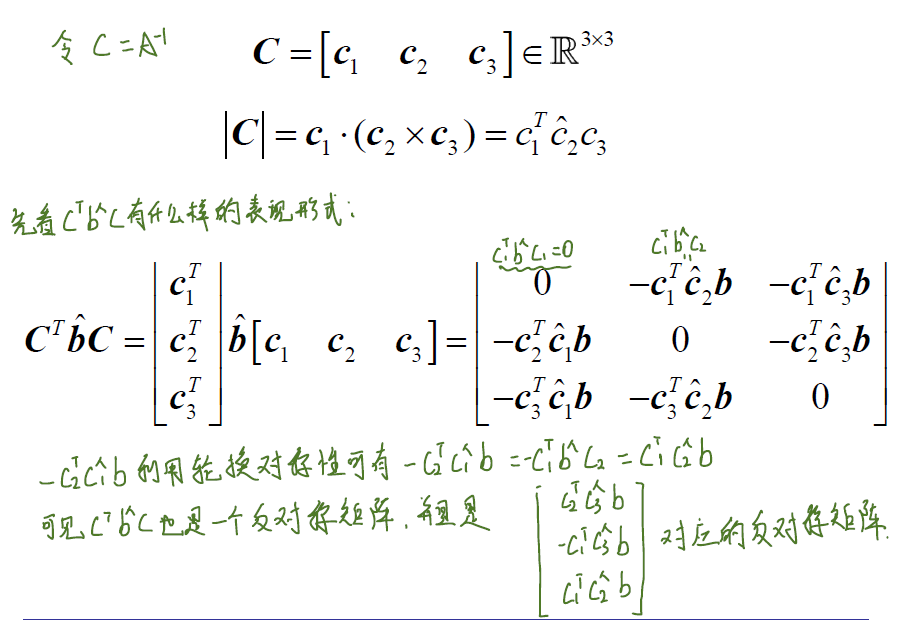 令 C = A⁻¹
C = [c₁ c₂ c₃] ∈ ℝ³ˣ³
|C| = c₁ · (c₂ × c₃) = c₁ᵀ ĉ₂ c₃
先看 Cᵀb^C 有什么样的表现形式:
c₁ᵀb^c₁ = 0 c₁ᵀb^c₂
=
Cᵀ b̂ C = [c₁ᵀ; c₂ᵀ; c₃ᵀ] b̂ [c₁ c₂ c₃] = [0 −c₁ᵀĉ₂b −c₁ᵀĉ₃b; −c₂ᵀĉ₁b 0 −c₂ᵀĉ₃b; −c₃ᵀĉ₁b −c₃ᵀĉ₂b 0]
−c₂ᵀc₁^b 利用轮换对称性可有 −c₂ᵀc₁^b = −c₁ᵀb^c₂ = c₁ᵀc₂^b
可见 Cᵀb^C 也是一个反对称矩阵, 并且是 [c₂ᵀc₃^b; −c₁ᵀc₃^b; c₁ᵀc₂^b] 对应的反对称矩阵.